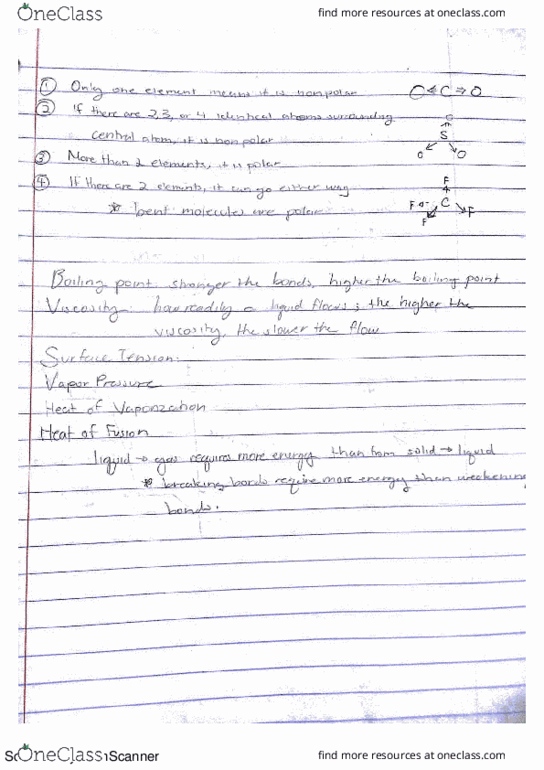 OneClass find more resources at oneclass.com
① Only one element means it is nonpolar O ← C → O
② If there are 2, 3, or 4 identical atoms surrounding
central atom, it is nonpolar
O
S
O O
③ More than 2 elements, it is polar
④ If there are 2 elements, it can go either way
* bent molecules are polar
F
F C F
F
Boiling point: stronger the bonds, higher the boiling point
Viscosity: how readily a liquid flows; the higher the
viscosity, the slower the flow
Surface Tension:
Vapor Pressure
Heat of Vaporization
Heat of Fusion
liquid → gas requires more energy than from solid → liquid
* breaking bonds require more energy than weakening
bonds.
OneClass Scanner find more resources at oneclass.com